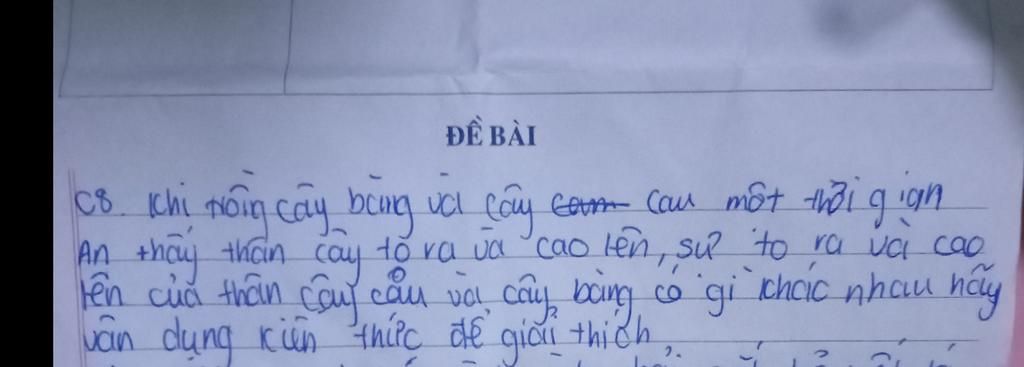 ĐỀ BÀI
C8. Khi trồng cây bàng và cây cam cau một thời gian
An thấy thân cây to ra và cao lên, sự to ra và cao
lên của thân cây cau và cây bàng có gì khác nhau hãy
vận dụng kiến thức để giải thích